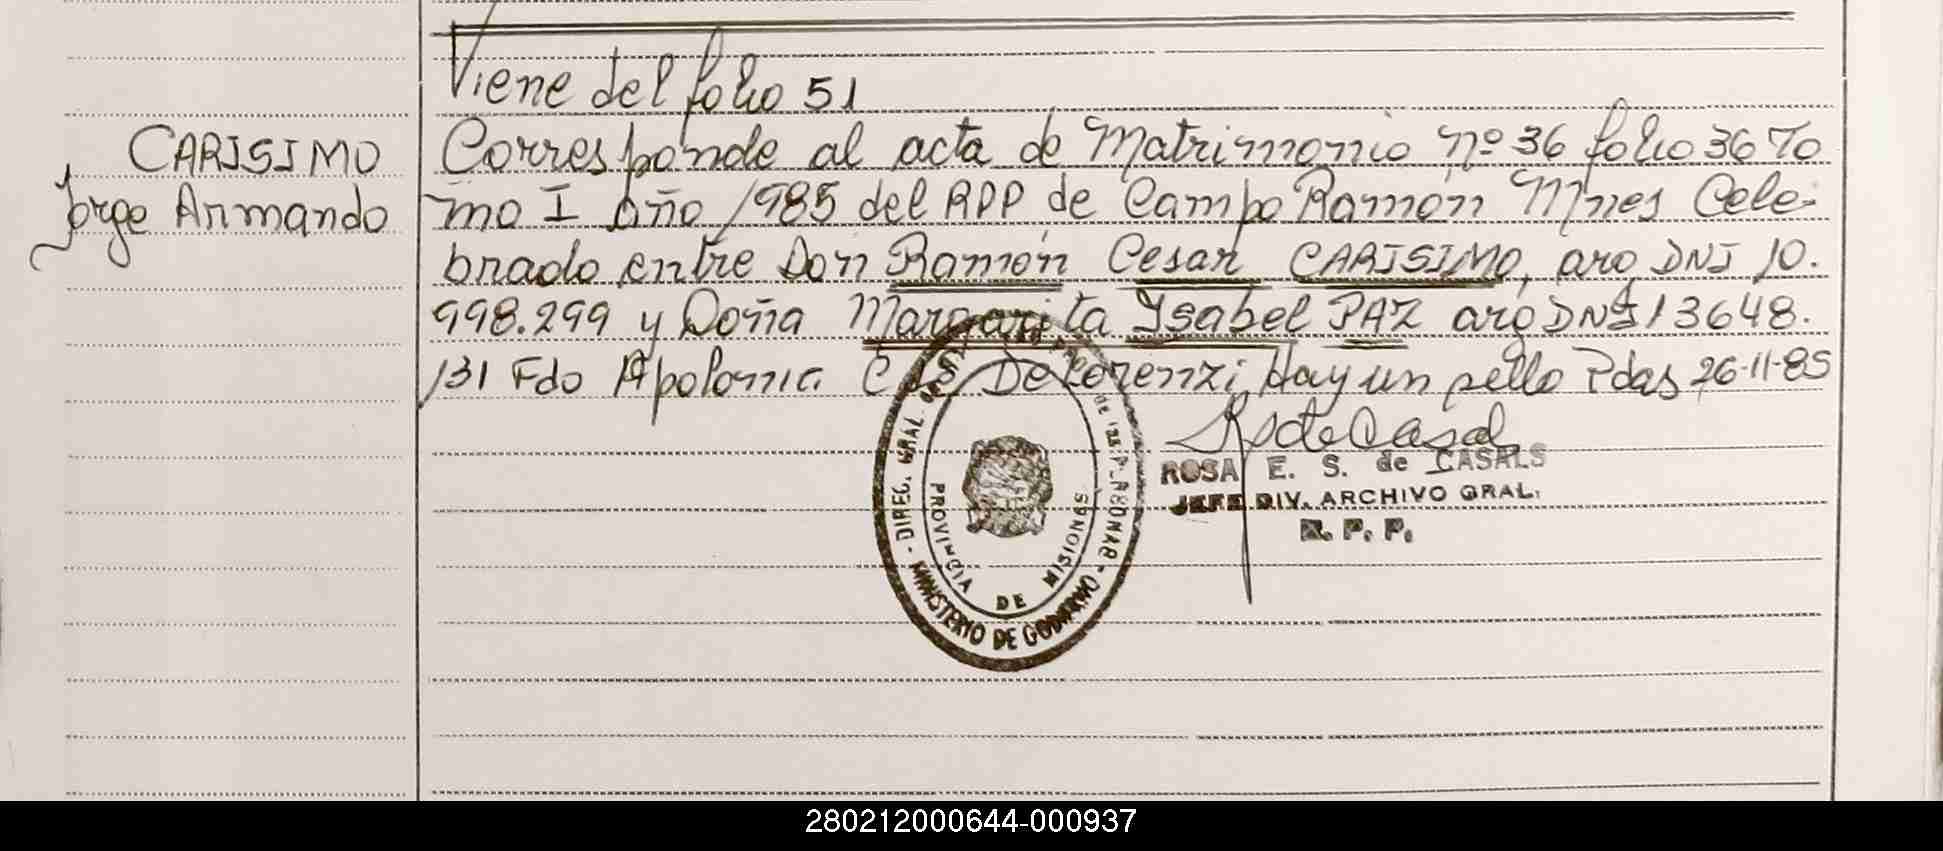 Viene del folio 51
CARISIMO
Jorge Armando
Corresponde al acta de Matrimonio nº 36 folio 36 To
mo I Año 1985 del RPP de Campo Ramón Mnes Cele-
brado entre Don Ramón Cesar CARISIMO, aro DNI 10.
998.299 y Doña Margarita Ysabel PAZ aro DNI 13648.
131 Fdo Apolonia C de De Lorenzi, Hay un sello Pdas 26-11-85
ROSA E. S. de CASALS
JEFE DIV. ARCHIVO GRAL.
R. P. P.
DIREC. GRAL.
PROVINCIA DE MISIONES
MINISTERIO DE GOBIERNO
280212000644-000937